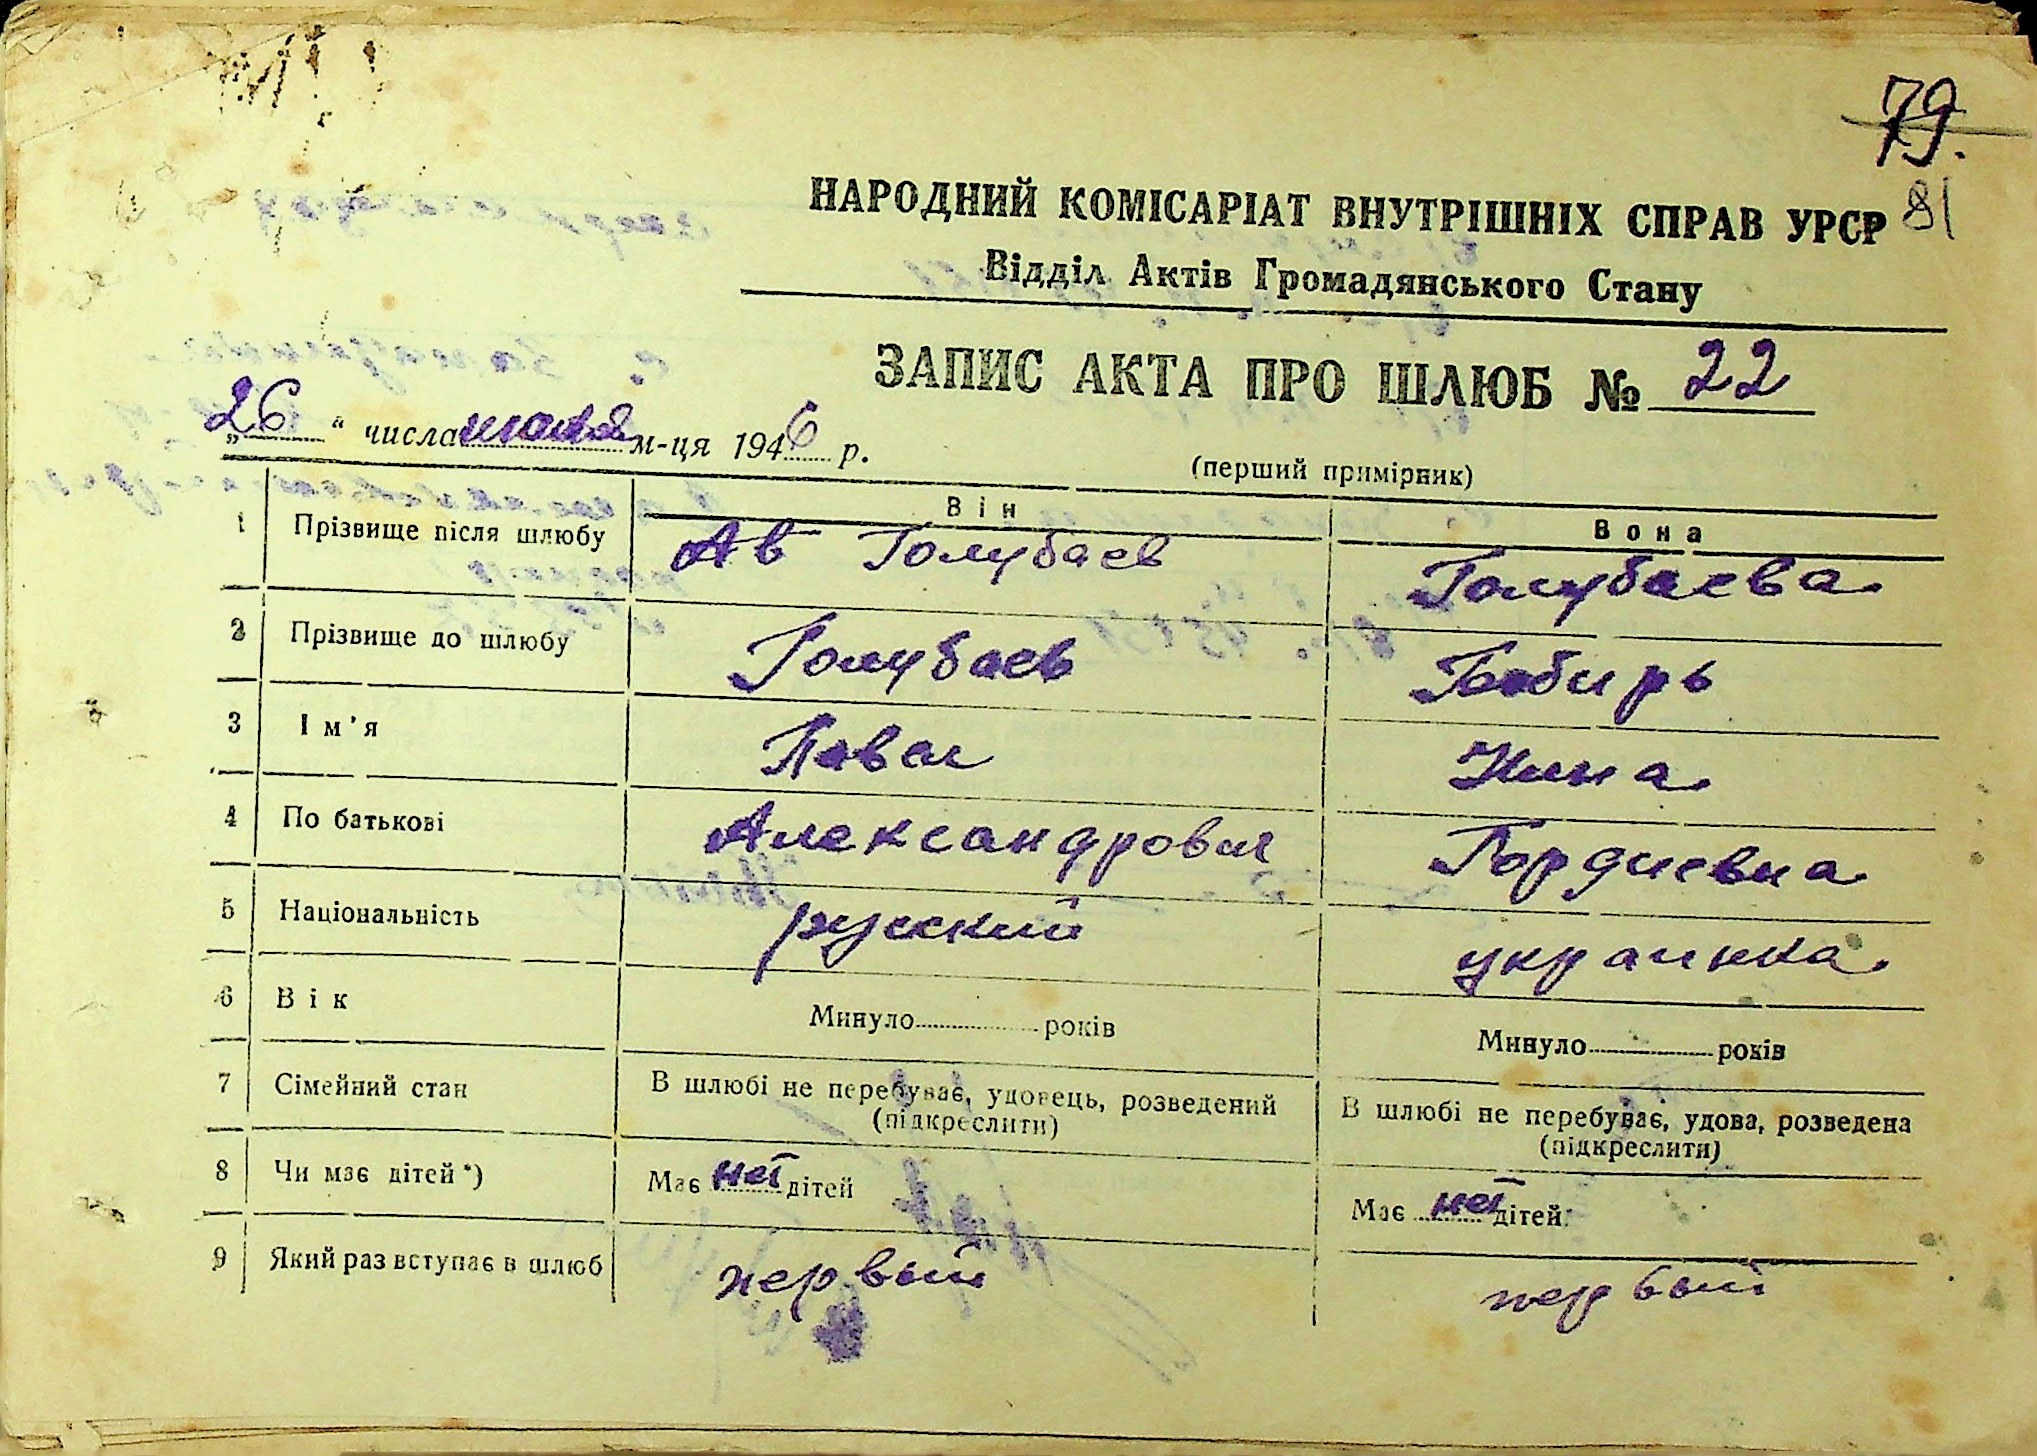 79.
81
НАРОДНИЙ КОМІСАРІАТ ВНУТРІШНІХ СПРАВ УРСР
Відділ Актів Громадянського Стану
ЗАПИС АКТА ПРО ШЛЮБ № 22
„26“ числа м-ця 1946 р.
(перший примірник)
Він Вона
1 Прізвище після шлюбу Ав Голубаев Голубаева
2 Прізвище до шлюбу Голубаев Бабирь
3 Ім'я Павел Нина
4 По батькові Александрович Гордиевна
5 Національність русский украинка
6 Вік Минуло років Минуло років
7 Сімейний стан В шлюбі не перебуває, удовець, розведений В шлюбі не перебуває, удова, розведена
(підкреслити) (підкреслити)
8 Чи має дітей*) Має нет дітей Має нет дітей
9 Який раз вступає в шлюб первый первый